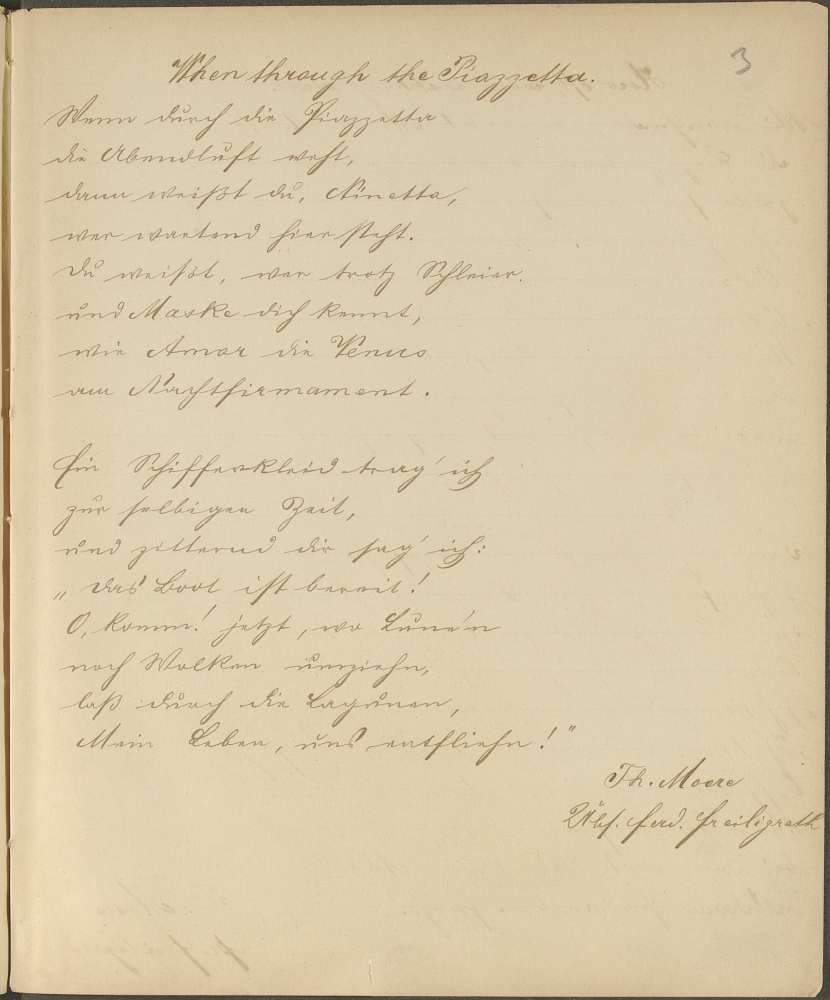 3
When through the Piazzetta.
Wenn durch die Piazzetta
die Abendluft weht,
dann weißt du, Ninetta,
wer wartend hier steht.
Du weißt, wer trotz Schleier
und Maske dich kennt,
wie Amor die Venus
am Nachtfirmament.
Ein Schifferkleid trag' ich
zur selbigen Zeit,
und zitternd dir sag' ich:
„das Boot ist bereit!
O, komm! jetzt, wo Lune'n
noch Wolken umziehn,
laß durch die Lagunen,
Mein Leben, uns entfliehn!"
Th. Moore
Übs. Ferd. Freiligrath